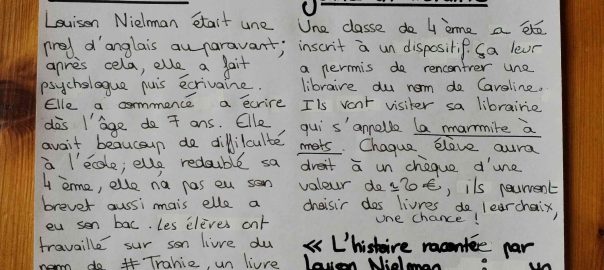 Louison Nielman était une
prof d'anglais auparavant;
après cela, elle a fait
psychologue puis écrivaine.
Elle a commencé a écrire
dès l'âge de 7 ans. Elle
avait beaucoup de difficulté
à l'école; elle redoublé sa
4 ème, elle n'a pas eu son
brevet aussi mais elle a
eu son bac. Les élèves ont
travaillé sur son livre du
nom de # Trahie, un livre
Une classe de 4 ème a été
inscrit à un dispositif ça leur
a permis de rencontrer une
libraire du nom de Caroline.
Ils vont visiter sa librairie
qui s'appelle la marmite à
mots. Chaque élève aura
droit à un chèque d'une
valeur de 20 €, ils pourront
choisir des livres de leur choix,
une chance !
« L'histoire racontée par
Louison Nielman : un